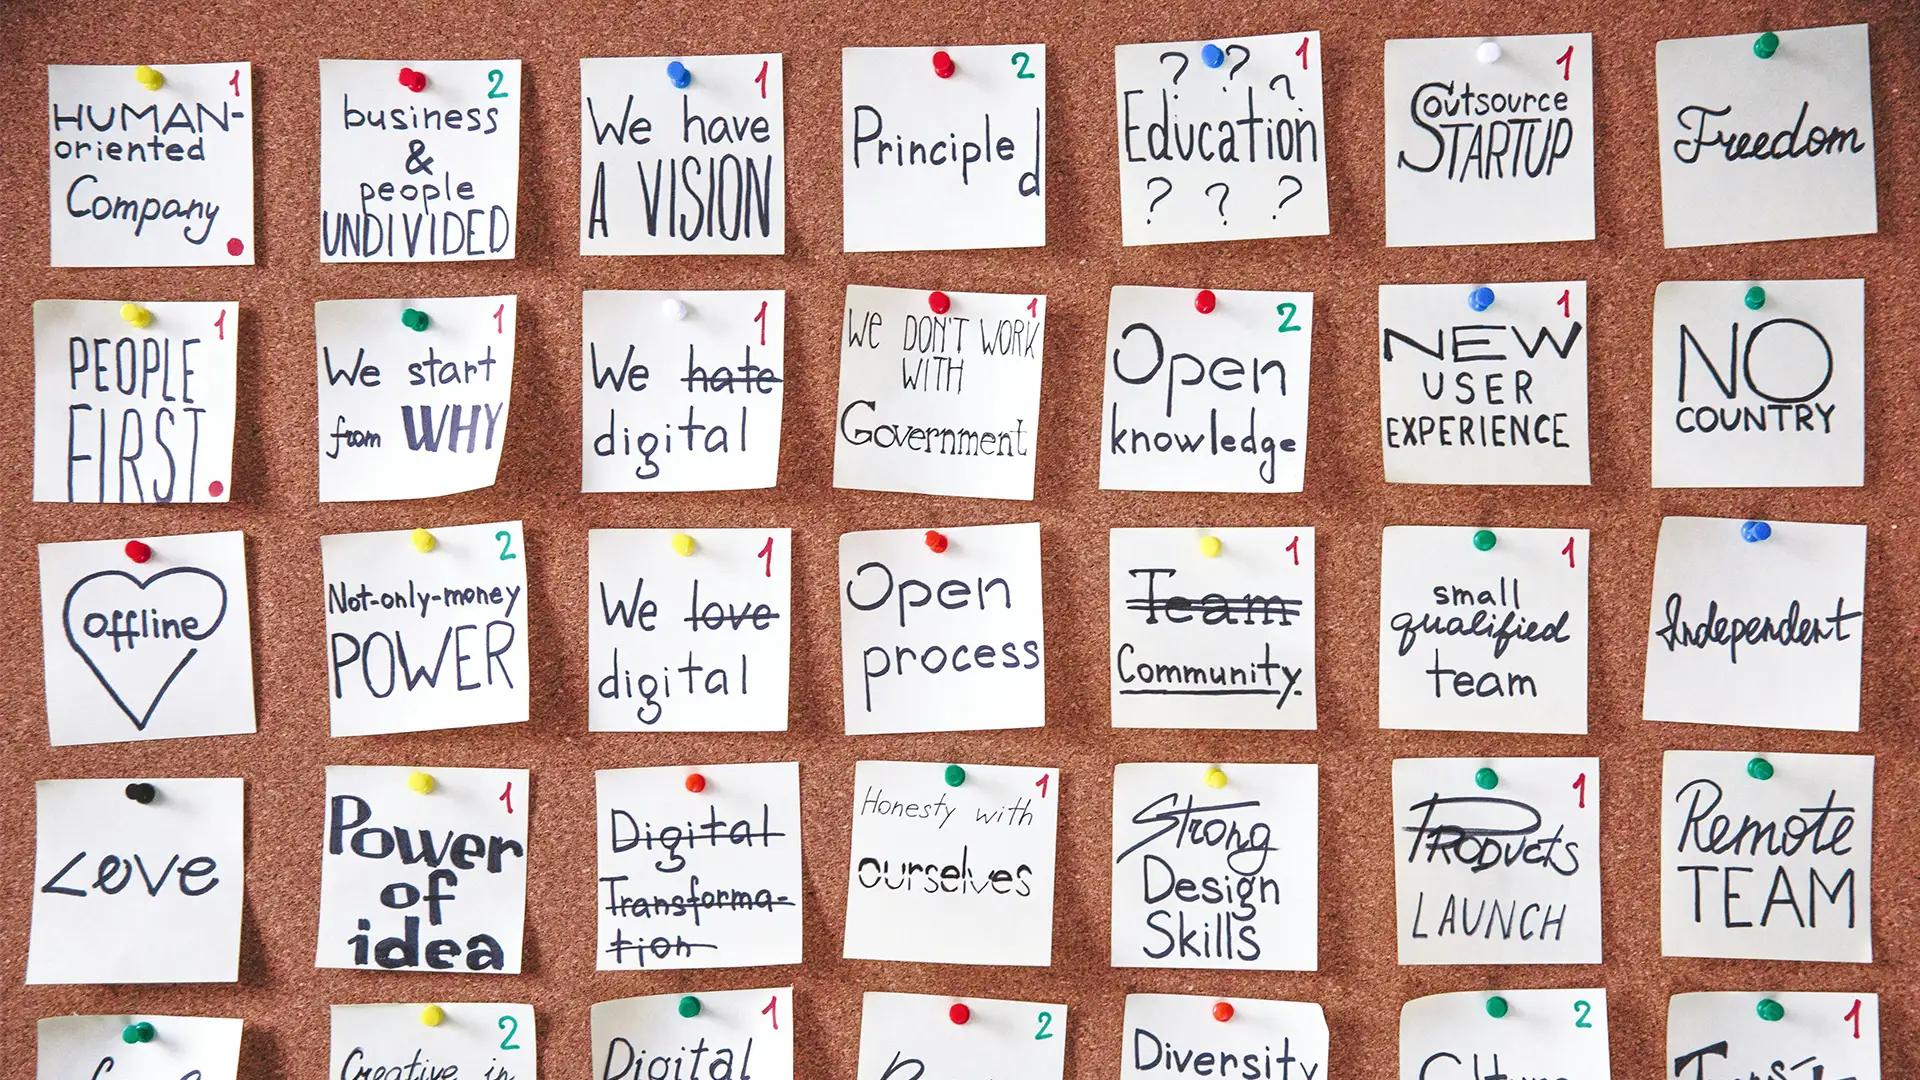 1
HUMAN-
oriented
Company
2
business
&
people
UNDIVIDED
1
We have
A VISION
2
Principled
1
? ? ?
Education
? ? ?
1
Outsource
STARTUP
Freedom
1
PEOPLE
FIRST
1
We start
from WHY
1
We hate
digital
1
WE DON'T WORK
WITH
Government
2
Open
knowledge
1
NEW
USER
EXPERIENCE
NO
COUNTRY
offline
2
Not-only-money
POWER
1
We love
digital
Open
process
1
Team
Community.
1
small
qualified
team
Independent
Love
1
Power
of
idea
Digital
Transforma-
tion
1
Honesty with
ourselves
Strong
Design
Skills
1
PRODUCTS
LAUNCH
Remote
TEAM
2
Creative in
1
Digital
2
Diversity
2
1